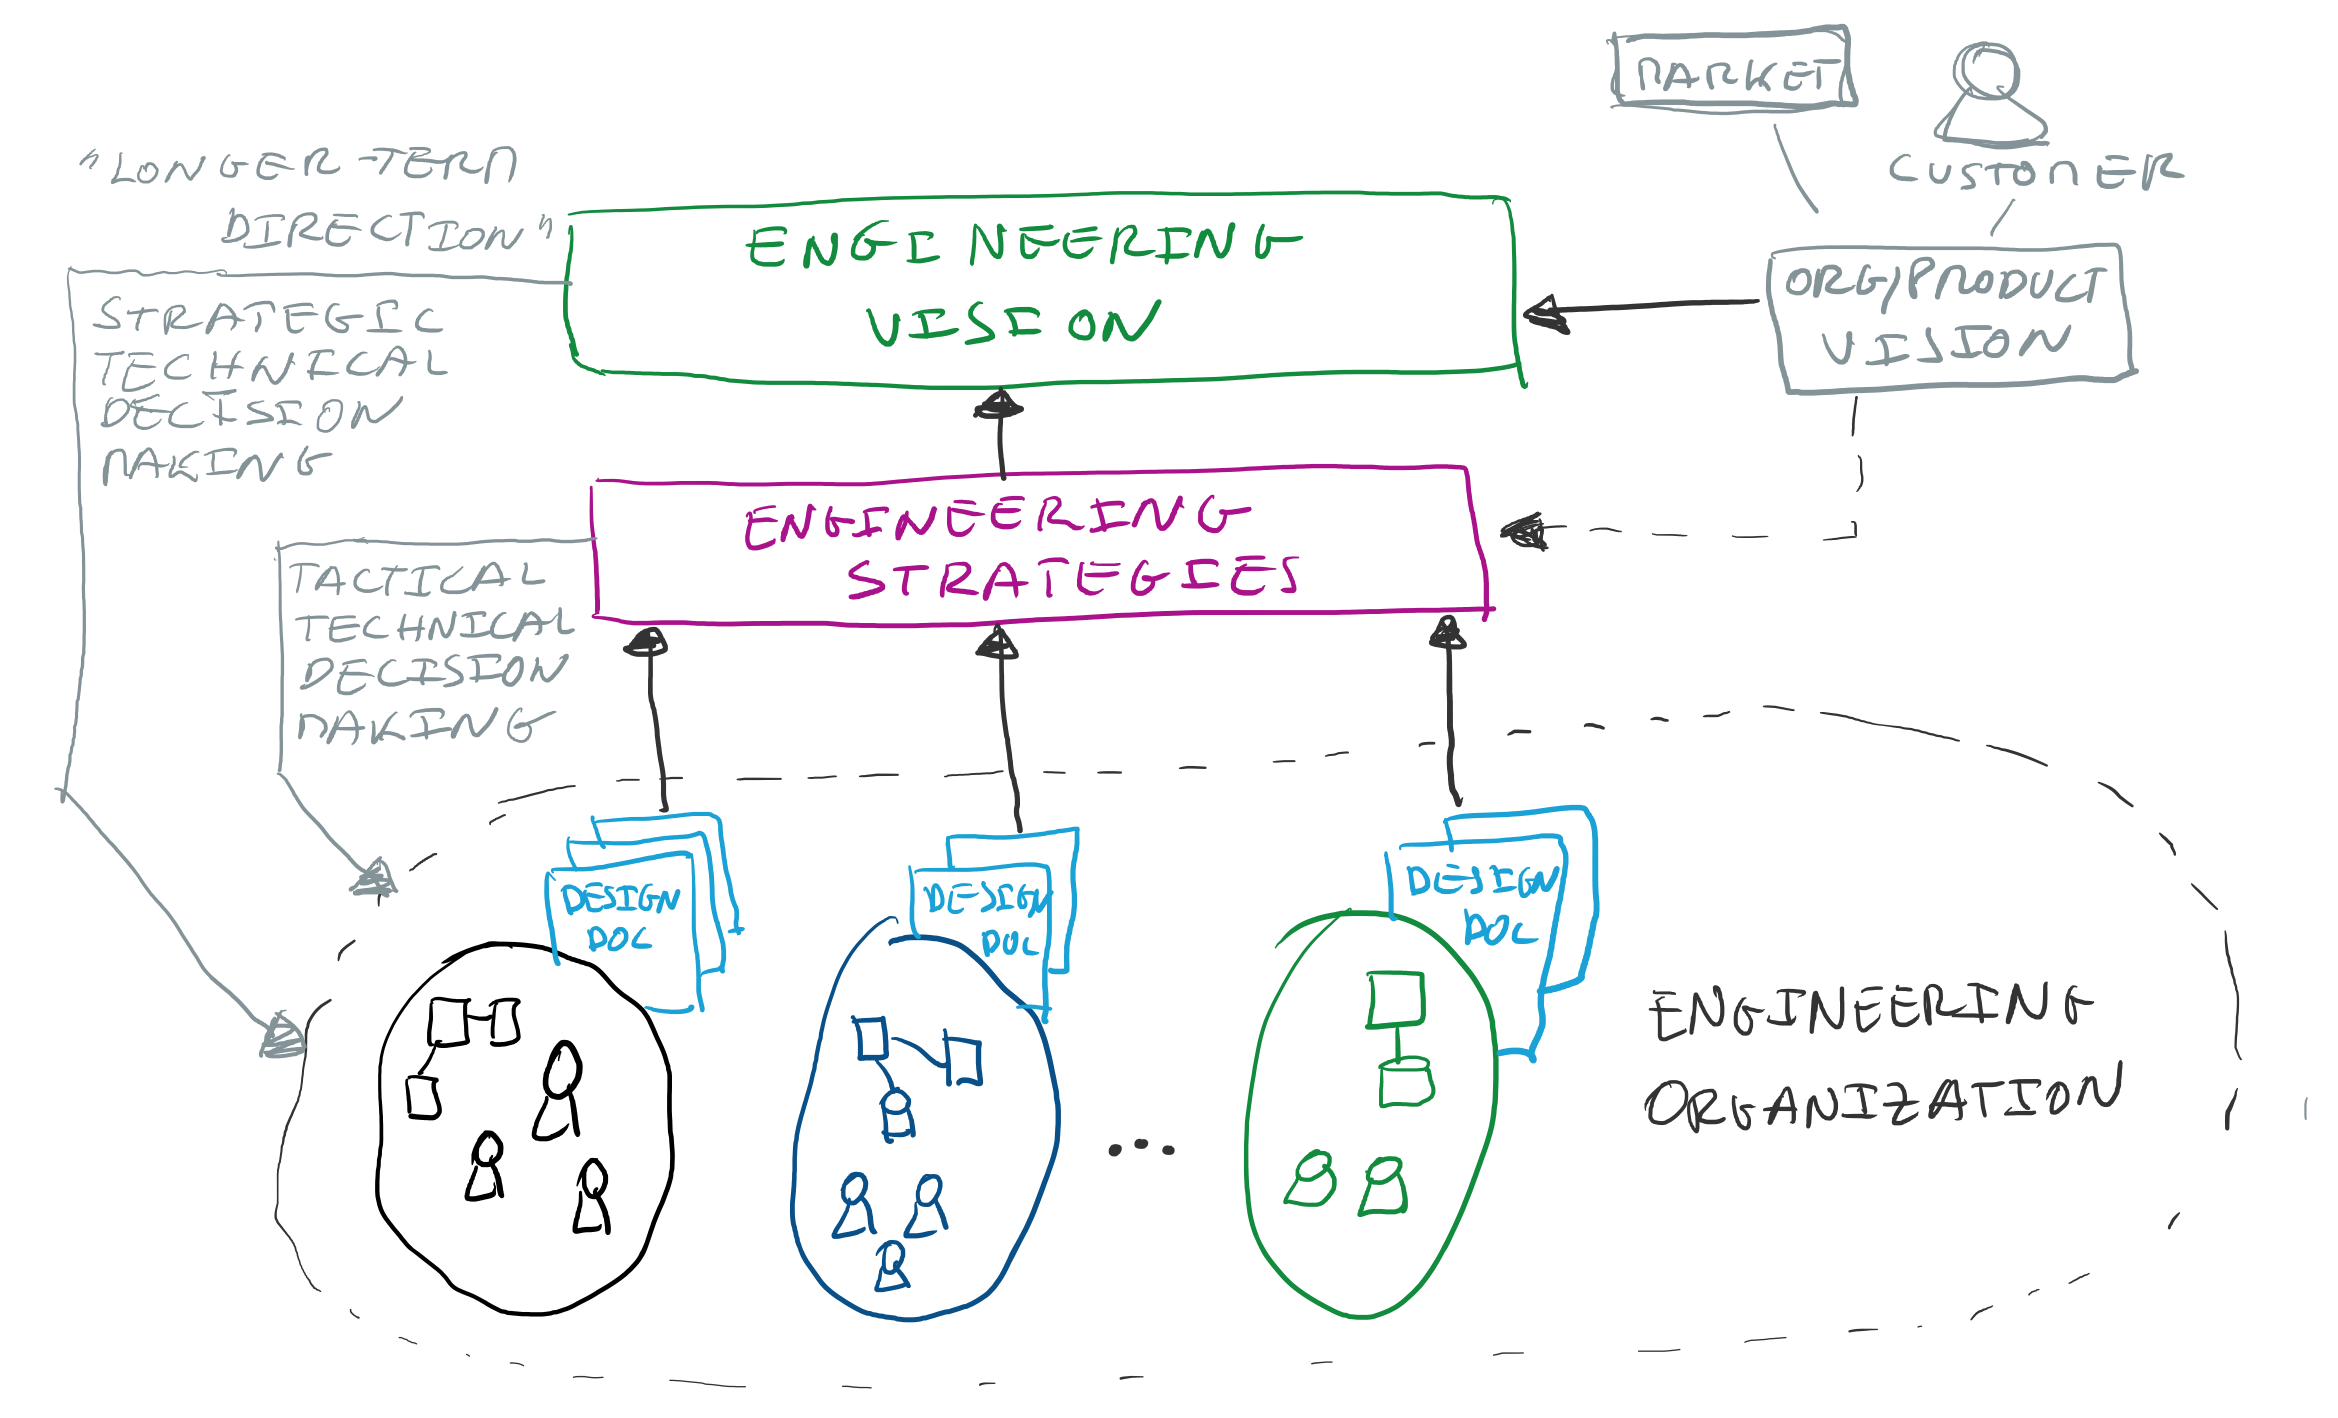 MARKET
CUSTOMER
"LONGER-TERM
DIRECTION"
ENGINEERING
VISION
ORG/PRODUCT
VISION
STRATEGIC
TECHNICAL
DECISION
MAKING
ENGINEERING
STRATEGIES
TACTICAL
TECHNICAL
DECISION
MAKING
DESIGN
DOC
DESIGN
DOC
DESIGN
DOC
...
ENGINEERING
ORGANIZATION